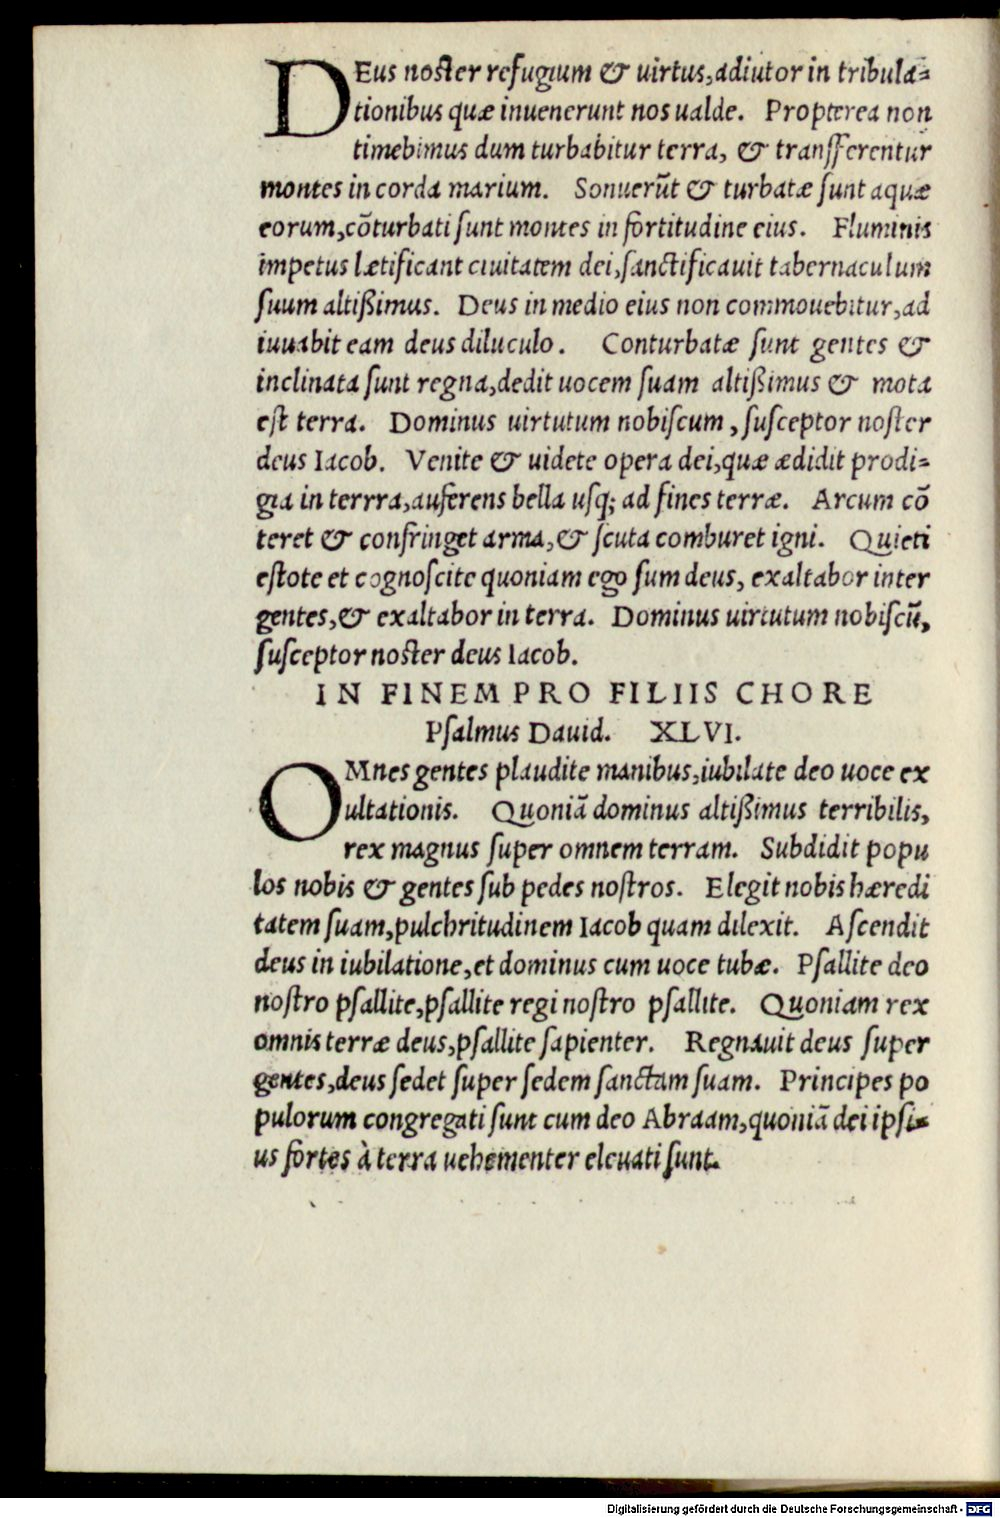 DEus noster refugium & uirtus, adiutor in tribula=
tionibus quæ inuenerunt nos ualde. Propterea non
timebimus dum turbabitur terra, & transferentur
montes in corda marium. Sonuerũt & turbatæ sunt aquæ
eorum, cõturbati sunt montes in fortitudine eius. Fluminis
impetus lætificant ciuitatem dei, sanctificauit tabernaculum
suum altißimus. Deus in medio eius non commouebitur, ad
iuuabit eam deus diluculo. Conturbatæ sunt gentes &
inclinata sunt regna, dedit uocem suam altißimus & mota
est terra. Dominus uirtutum nobiscum, susceptor noster
deus Iacob. Venite & uidete opera dei, quæ ædidit prodi=
gia in terrra, auferens bella usq; ad fines terræ. Arcum cõ
teret & confringet arma, & scuta comburet igni. Quieti
estote et cognoscite quoniam ego sum deus, exaltabor inter
gentes, & exaltabor in terra. Dominus uirtutum nobiscũ,
susceptor noster deus Iacob.
IN FINEM PRO FILIIS CHORE
Psalmus Dauid. XLVI.
OMnes gentes plaudite manibus, iubilate deo uoce ex
ultationis. Quoniã dominus altißimus terribilis,
rex magnus super omnem terram. Subdidit popu
los nobis & gentes sub pedes nostros. Elegit nobis hæredi
tatem suam, pulchritudinem Iacob quam dilexit. Ascendit
deus in iubilatione, et dominus cum uoce tubæ. Psallite deo
nostro psallite, psallite regi nostro psallite. Quoniam rex
omnis terræ deus, psallite sapienter. Regnauit deus super
gentes, deus sedet super sedem sanctam suam. Principes po
pulorum congregati sunt cum deo Abraam, quoniã dei ipsi=
us fortes à terra uehementer eleuati sunt.
Digitalisierung gefördert durch die Deutsche Forschungsgemeinschaft - DFG